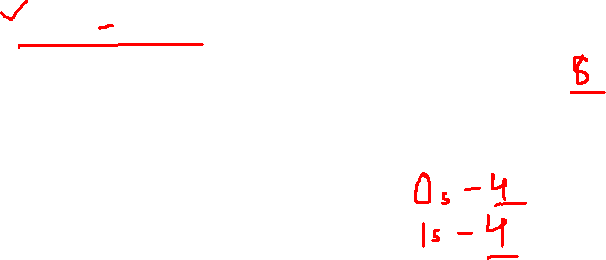 8
0s - 4
1s - 4